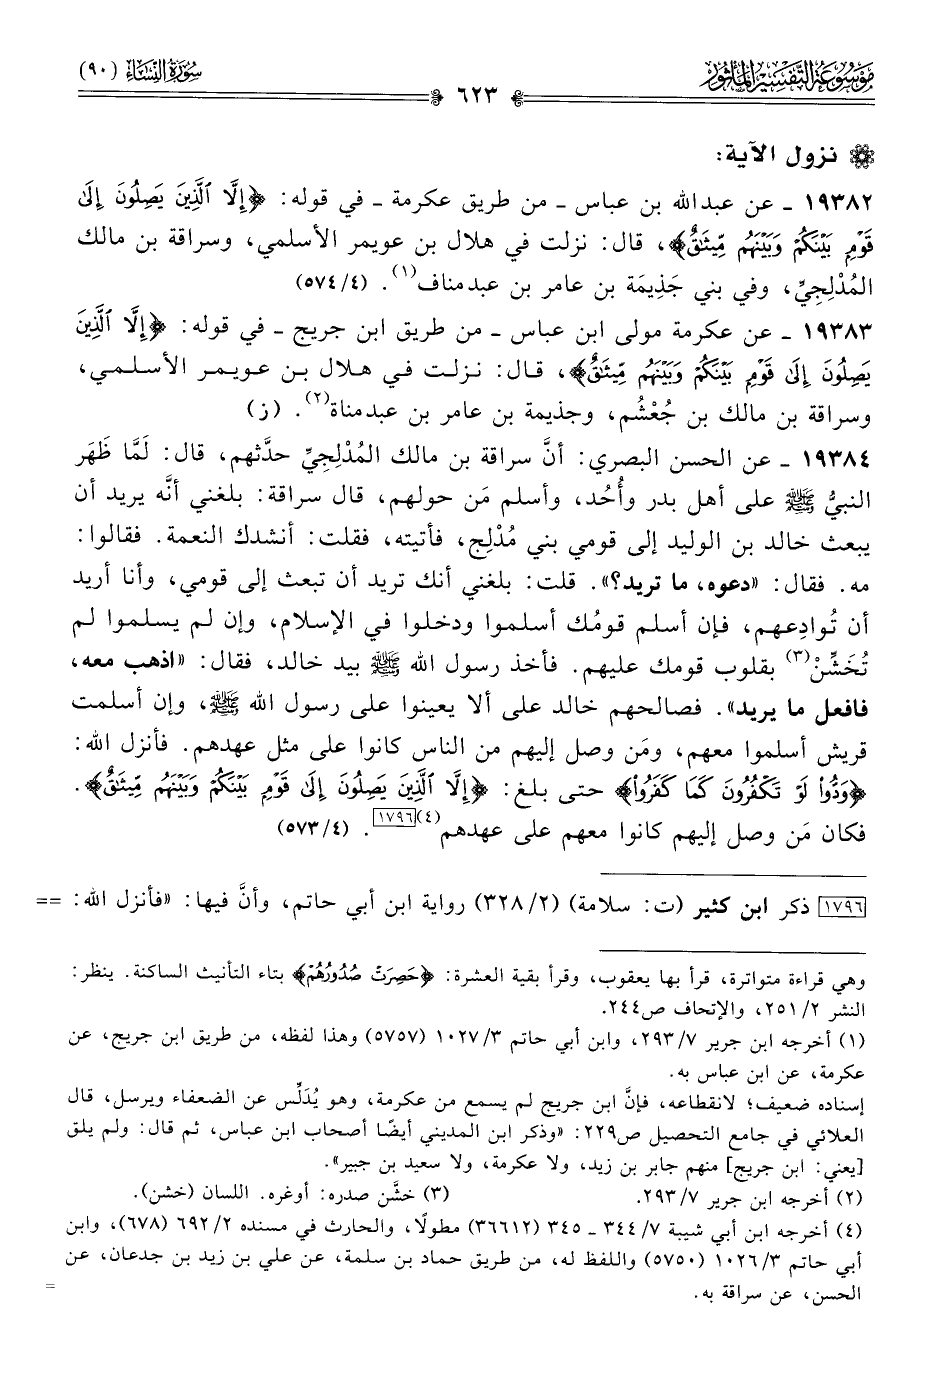 مَوْسُوعَةُ التَّفْسِيرِ المَأْثُورِ
٦٢٣
سُورَةُ النِّسَاءِ (٩٠)
نزول الآية:
١٩٣٨٢ ـ عن عبدالله بن عباس ـ من طريق عكرمة ـ في قوله: ﴿إِلَّا ٱلَّذِينَ يَصِلُونَ إِلَىٰ
قَوْمِۭ بَيْنَكُمْ وَبَيْنَهُم مِّيثَـٰقٌ﴾، قال: نزلت في هلال بن عويمر الأسلمي، وسراقة بن مالك
المُدْلِجِيِّ، وفي بني جَذِيمَة بن عامر بن عبدمناف(١). (٤/ ٥٧٤)
١٩٣٨٣ ـ عن عكرمة مولى ابن عباس ـ من طريق ابن جريج ـ في قوله: ﴿إِلَّا ٱلَّذِينَ
يَصِلُونَ إِلَىٰ قَوْمِۭ بَيْنَكُمْ وَبَيْنَهُم مِّيثَـٰقٌ﴾، قال: نزلت في هلال بن عويمر الأسلمي،
وسراقة بن مالك بن جُعْشُم، وجذيمة بن عامر بن عبدمناة(٢). (ز)
١٩٣٨٤ ـ عن الحسن البصري: أنَّ سراقة بن مالك المُدْلِجِيِّ حدَّثهم، قال: لَمَّا ظَهَر
النبيُّ ﷺ على أهل بدر وأُحُد، وأسلم مَن حولهم، قال سراقة: بلغني أنَّه يريد أن
يبعث خالد بن الوليد إلى قومي بني مُدْلِج، فأتيته، فقلت: أنشدك النعمة. فقالوا:
مه. فقال: «دعوه، ما تريد؟». قلت: بلغني أنك تريد أن تبعث إلى قومي، وأنا أريد
أن تُوادِعهم، فإن أسلم قومُك أسلموا ودخلوا في الإسلام، وإن لم يسلموا لم
تُخَشِّنْ(٣) بقلوب قومك عليهم. فأخذ رسول الله ﷺ بيد خالد، فقال: «اذهب معه،
فافعل ما يريد». فصالحهم خالد على ألا يعينوا على رسول الله ﷺ، وإن أسلمت
قريش أسلموا معهم، ومَن وصل إليهم من الناس كانوا على مثل عهدهم. فأنزل الله:
﴿وَدُّوا۟ لَوْ تَكْفُرُونَ كَمَا كَفَرُوا۟﴾ حتى بلغ: ﴿إِلَّا ٱلَّذِينَ يَصِلُونَ إِلَىٰ قَوْمِۭ بَيْنَكُمْ وَبَيْنَهُم مِّيثَـٰقٌ﴾.
فكان مَن وصل إليهم كانوا معهم على عهدهم(٤)[١٧٩٦]. (٤/ ٥٧٣)
[١٧٩٦] ذكر ابن كثير (ت: سلامة) (٢/ ٣٢٨) رواية ابن أبي حاتم، وأنَّ فيها: «فأنزل الله: ==
وهي قراءة متواترة، قرأ بها يعقوب، وقرأ بقية العشرة: ﴿حَصِرَتْ صُدُورُهُمْ﴾ بتاء التأنيث الساكنة. ينظر:
النشر ٢/ ٢٥١، والإتحاف ص٢٤٤.
(١) أخرجه ابن جرير ٧/ ٢٩٣، وابن أبي حاتم ٣/ ١٠٢٧ (٥٧٥٧) وهذا لفظه، من طريق ابن جريج، عن
عكرمة، عن ابن عباس به.
إسناده ضعيف؛ لانقطاعه، فإنَّ ابن جريج لم يسمع من عكرمة، وهو يُدَلِّس عن الضعفاء ويرسل، قال
العلائي في جامع التحصيل ص٢٢٩: «وذكر ابن المديني أيضًا أصحاب ابن عباس، ثم قال: ولم يلق
[يعني: ابن جريج] منهم جابر بن زيد، ولا عكرمة، ولا سعيد بن جبير».
(٢) أخرجه ابن جرير ٧/ ٢٩٣. (٣) خشَّن صدره: أوغره. اللسان (خشن).
(٤) أخرجه ابن أبي شيبة ٧/ ٣٤٤ ـ ٣٤٥ (٣٦٦١٢) مطولًا، والحارث في مسنده ٢/ ٦٩٢ (٦٧٨)، وابن
أبي حاتم ٣/ ١٠٢٦ (٥٧٥٠) واللفظ له، من طريق حماد بن سلمة، عن علي بن زيد بن جدعان، عن
الحسن، عن سراقة به. =